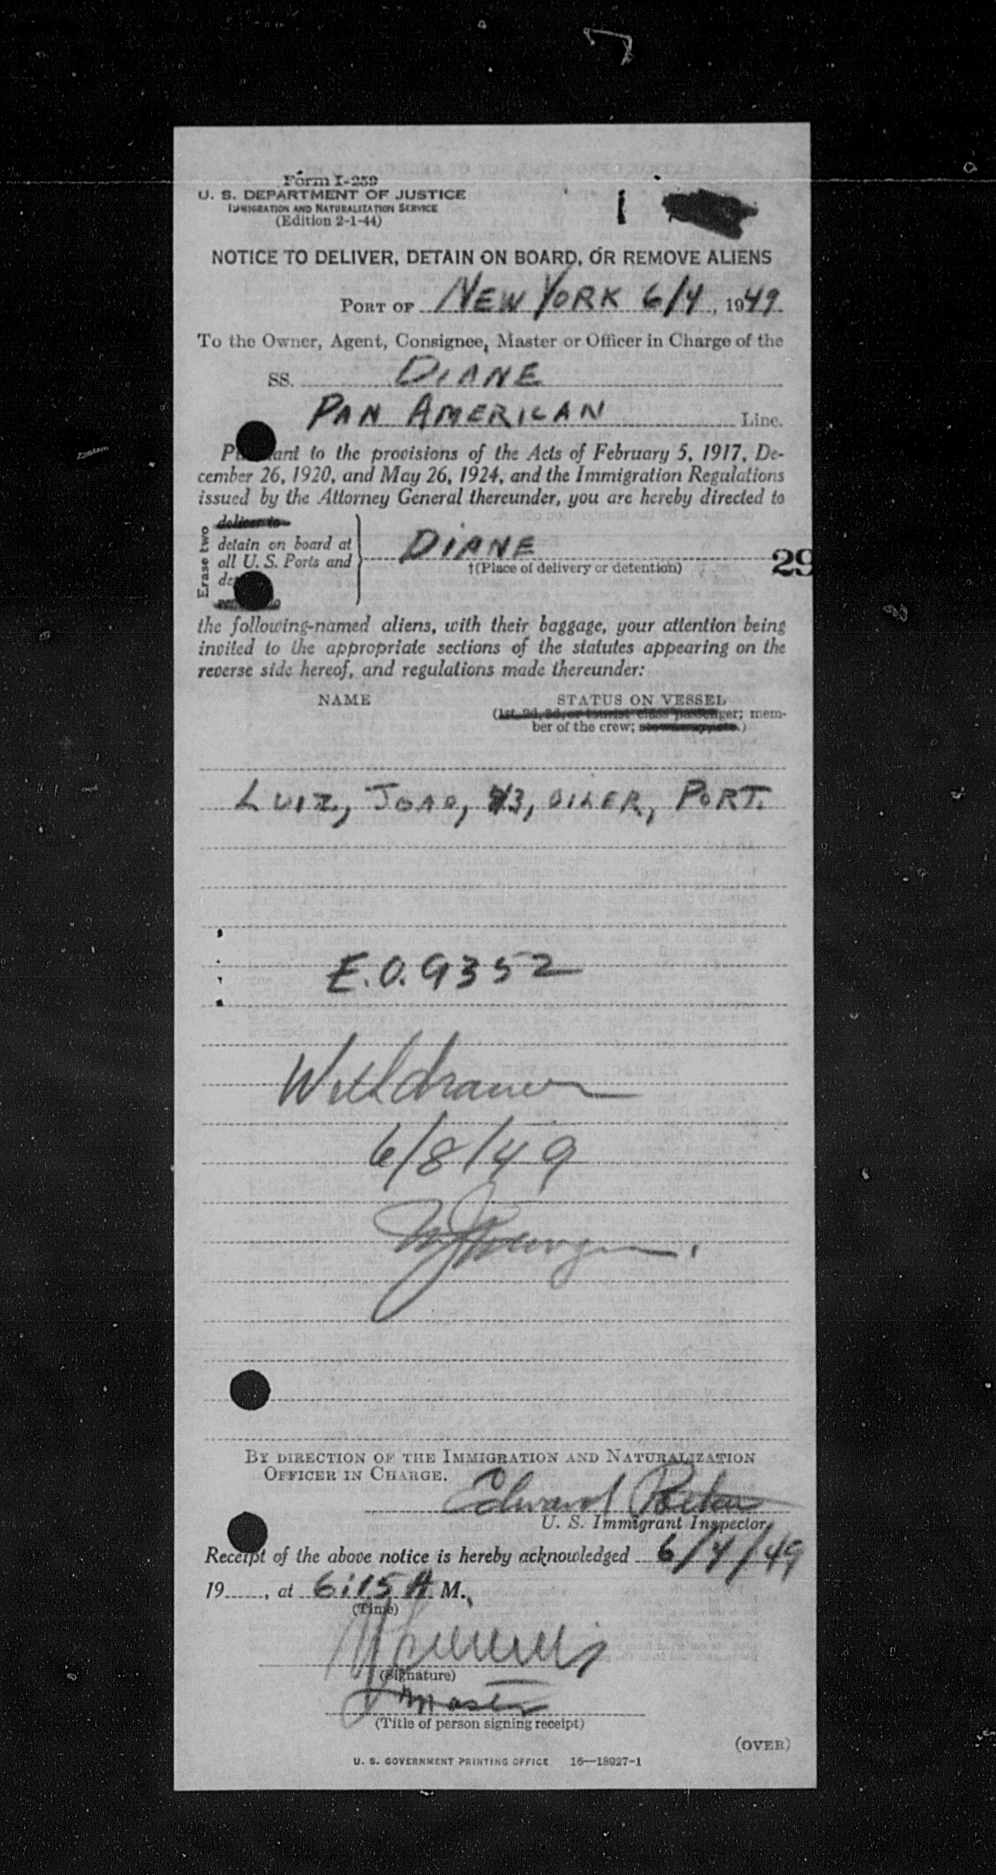 Form I-259
U. S. DEPARTMENT OF JUSTICE
IMMIGRATION AND NATURALIZATION SERVICE
(Edition 2-1-44)
1
NOTICE TO DELIVER, DETAIN ON BOARD, OR REMOVE ALIENS
PORT OF NEW YORK 6/4, 1949
To the Owner, Agent, Consignee, Master or Officer in Charge of the
SS. DIANE
PAN AMERICAN Line.
Pursuant to the provisions of the Acts of February 5, 1917, De-
cember 26, 1920, and May 26, 1924, and the Immigration Regulations
issued by the Attorney General thereunder, you are hereby directed to
Erase two
deliver to
detain on board at
all U. S. Ports and
DIANE
†(Place of delivery or detention)
29
the following-named aliens, with their baggage, your attention being
invited to the appropriate sections of the statutes appearing on the
reverse side hereof, and regulations made thereunder:
NAME STATUS ON VESSEL
(1st, 2d, 3d, or tourist class passenger; mem-
ber of the crew;
LUIZ, JOAO, 43, OILER, PORT.
E.O. 9352
Withdrawn
6/8/49
BY DIRECTION OF THE IMMIGRATION AND NATURALIZATION
OFFICER IN CHARGE.
Edward
U. S. Immigrant Inspector.
Receipt of the above notice is hereby acknowledged 6/4/49
19......, at 6:15 A M.
(Time)
(Signature)
Master
(Title of person signing receipt)
(OVER)
U. S. GOVERNMENT PRINTING OFFICE 16—18027-1